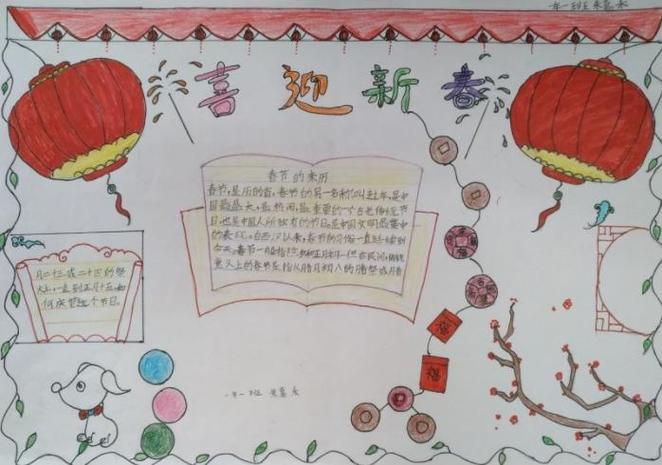 一年一班 朱嘉禾
喜迎新春
春节的来历
春节,是历的首,春节的另一名称叫过年,是中
国最盛大,最热闹,最重要的一个古老传统节
日,也是中国人所独有的节日,是中国文明最集中
的表现。自西汉以来,春节的习俗一直延续到
今天。春节一般指除夕和正月初一。但在民间,传统
意义上的春节是指从腊月初八的腊祭或腊
月二十三或二十四的祭
灶,一直到正月十五,如
何庆贺这个节日。
福
福
一年一班 朱嘉禾